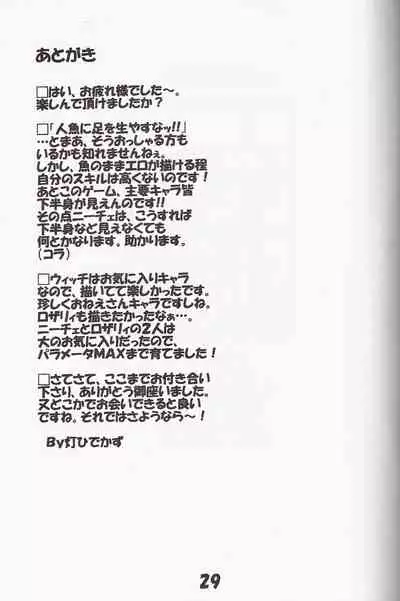 あとがき
□はい、お疲れ様でした～。
楽しんで頂けましたか？
□「人魚に足を生やすなッ!!」
…とまぁ、そうおっしゃる方も
いるかも知れませんねぇ。
しかし、魚のままエロが描ける程
自分のスキルは高くないのです！
あとこのゲーム、主要キャラ皆
下半身が見えんのです!!
その点ニーチェは、こうすれば
下半身など見えなくても
何とかなります。助かります。
(コラ)
□ウィッチはお気に入りキャラ
なので、描いてて楽しかったです。
珍しくおねえさんキャラですしね。
ロザリィも描きたかったなぁ…。
ニーチェとロザリィの2人は
大のお気に入りだったので、
パラメータMAXまで育てました！
□さてさて、ここまでお付き合い
下さり、ありがとう御座いました。
又どこかでお会いできると良い
ですね。それではさようなら～！
By灯ひでかず
29